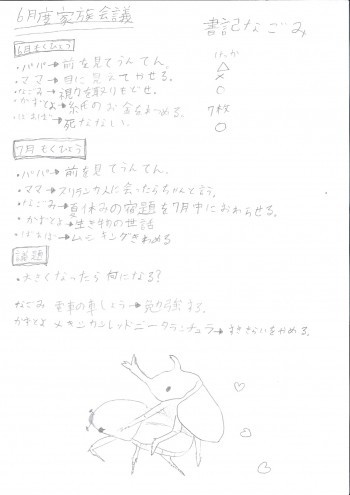 6月度家族会議
書記なごみ
6月もくひょう
けっか
・パパ→前を見てうんてん。 △
・ママ→目に見えてやせる。 ×
・なごみ→視力を取りもどせ。 ○
・かずとよ→糸用のお金をあつめる。 7枚
・ばあば→死なない。 ○
7月 もくひょう
・パパ→前を見てうんてん。
・ママ→スリランカ人に会ったらちゃんと言う。
・なごみ→夏休みの宿題を7月中におわらせる。
・かずとよ→生き物の世話
・ばあば→ムシキングきわめる
議題
・大きくなったら何になる?
なごみ 電車の車しょう→勉強する。
かずとよ メキシカンレッドニータランチュラ→すききらいをやめる。